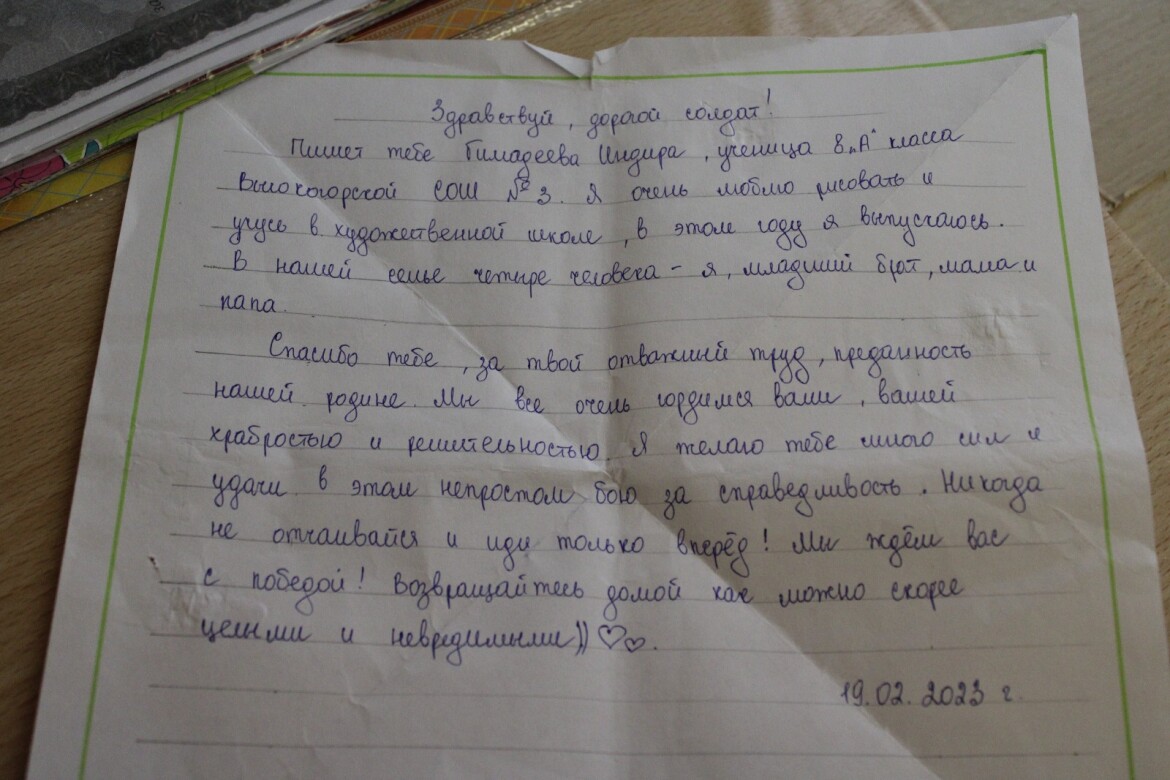 Здравствуй, дорогой солдат!
Пишет тебе Гимадеева Индира, ученица 8„А" класса
Высокогорской СОШ №3. Я очень люблю рисовать и
учусь в художественной школе, в этом году я выпускаюсь.
В нашей семье четыре человека - я, младший брат, мама и
папа.
Спасибо тебе, за твой отважный труд, преданность
нашей родине. Мы все очень гордимся вами, вашей
храбростью и решительностью. Я желаю тебе много сил и
удачи в этом непростом бою за справедливость. Никогда
не отчаивайся и иди только вперёд! Мы ждём вас
с победой! Возвращайтесь домой как можно скорее
целыми и невредимыми))♡♡.
19.02.2023 г.